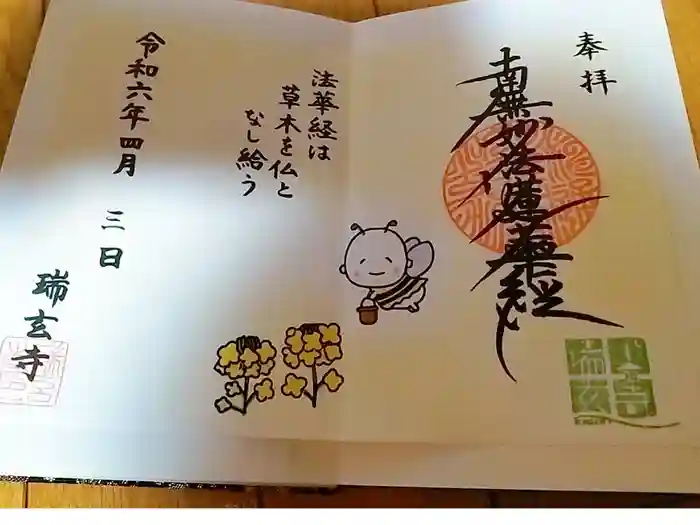 奉拝
南無妙法蓮華経
法華経は
草木を仏と
なし給う
令和六年四月 三日
瑞玄寺